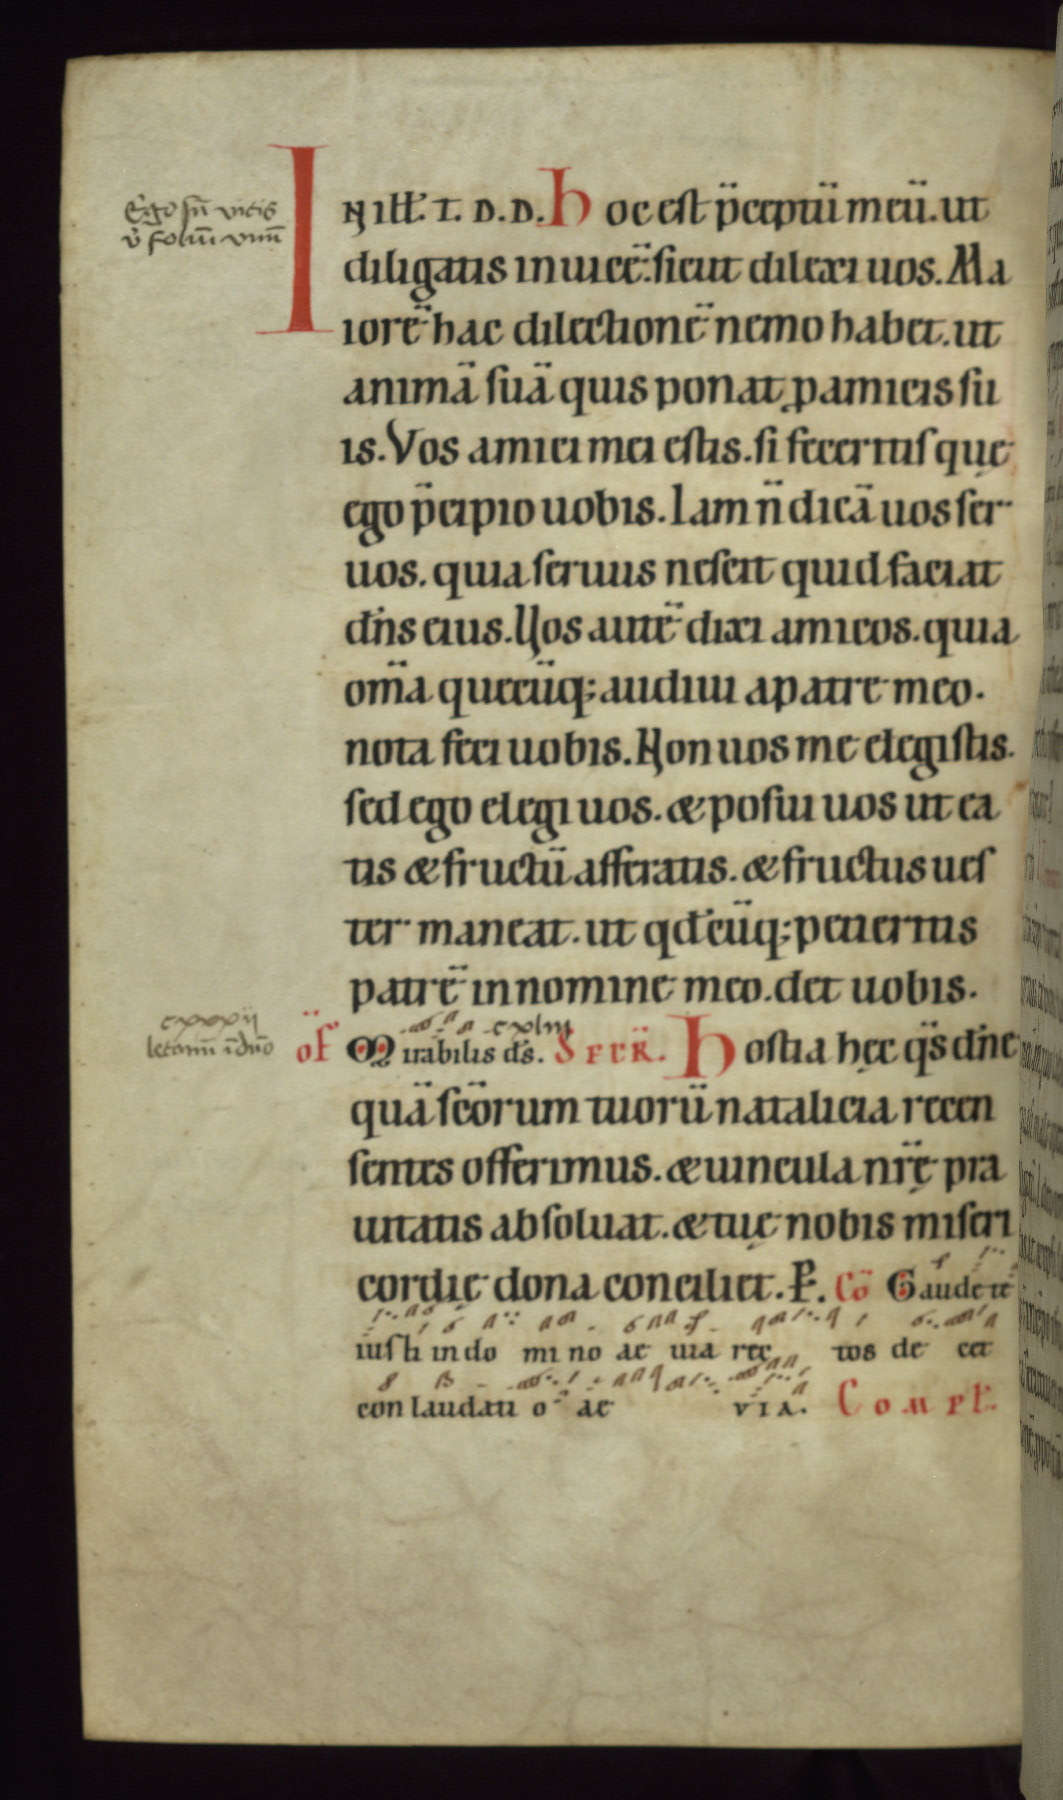 Ego sū vitis
v̄ foliū vnū
IN ill̄. T. D. D. hoc est p̄ceptū meū. ut
diligatis inuicē. sicut dilexi uos. Ma
iorē hac dilectionē nemo habet. ut
animā suā quis ponat p̱ amicis su
is. Vos amici mei estis. si feceritis quę
ego p̄cipio uobis. Iam n̄ dicā uos ser
uos. quia seruus nescit quid faciat
dn̄s eius. Vos autē dixi amicos. quia
om̄a quecūq; audiui a patre meo.
nota feci uobis. Non uos me elegistis.
sed ego elegi uos. & posui uos ut ea
tis & fructū afferatis. & fructus ues
ter maneat. ut qd̄cūq; petieritis
patrē in nomine meo. det uobis.
cxxxij
letamī ī dn̄o
cxliii
of̄ Mirabilis ds̄. SECR̄. Hostia hęc qs̄ dn̄e
quā scōrum tuorū natalicia recen
sentes offerimus. & uincula nr̄ę pra
uitatis absoluat. & tuę nobis miseri
cordię dona conciliet. P. Cō Gaudete
iusti in do mi no ac uia rec tos de cet
conlaudati o ae VIA. Compl̄.